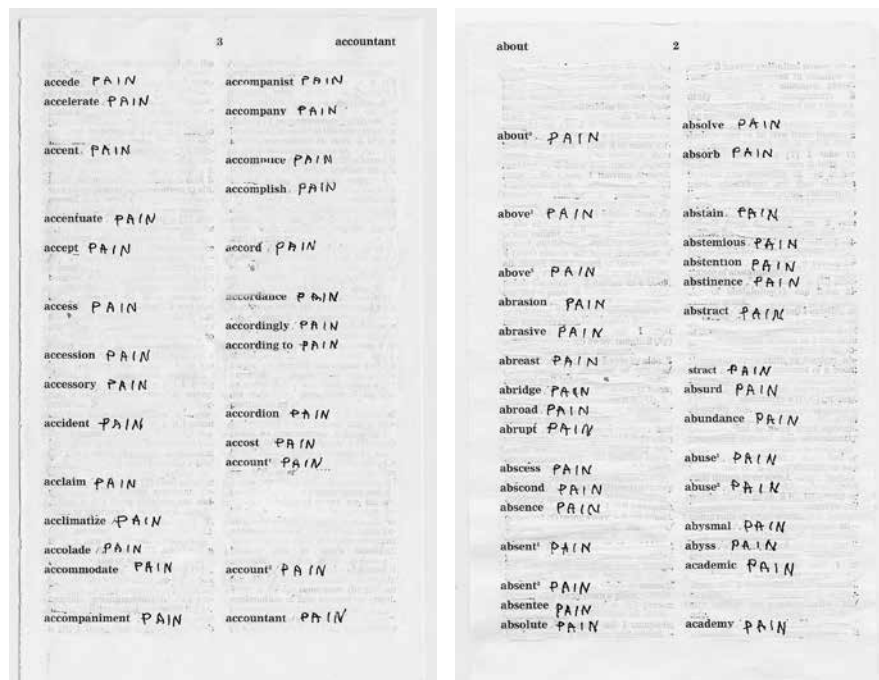 3 accountant
accede PAIN
accelerate PAIN
accent PAIN
accentuate PAIN
accept PAIN
access PAIN
accession PAIN
accessory PAIN
accident PAIN
acclaim PAIN
acclimatize PAIN
accolade PAIN
accommodate PAIN
accompaniment PAIN
accompanist PAIN
accompany PAIN
accomplice PAIN
accomplish PAIN
accord PAIN
accordance PAIN
accordingly PAIN
according to PAIN
accordion PAIN
accost PAIN
account¹ PAIN
account² PAIN
accountant PAIN
about 2
about² PAIN
above¹ PAIN
above² PAIN
abrasion PAIN
abrasive PAIN
abreast PAIN
abridge PAIN
abroad PAIN
abrupt PAIN
abscess PAIN
abscond PAIN
absence PAIN
absent¹ PAIN
absent² PAIN
absentee PAIN
absolute PAIN
absolve PAIN
absorb PAIN
abstain PAIN
abstemious PAIN
abstention PAIN
abstinence PAIN
abstract PAIN
stract PAIN
absurd PAIN
abundance PAIN
abuse¹ PAIN
abuse² PAIN
abysmal PAIN
abyss PAIN
academic PAIN
academy PAIN